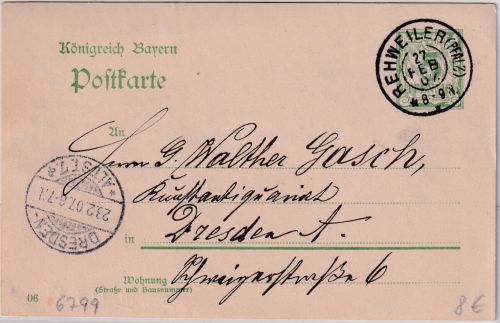 Königreich Bayern
Postkarte
REHWEILER (PFALZ)
27
FEB
07
8-9 N.
An
Herrn G. Walther Gasch,
Kunstantiquariat
in Dresden A.
DRESDEN-ALTST. 1
6-7 N.
Wohnung Schweigerstraße 6
(Straße und Hausnummer)
06
6799
8€